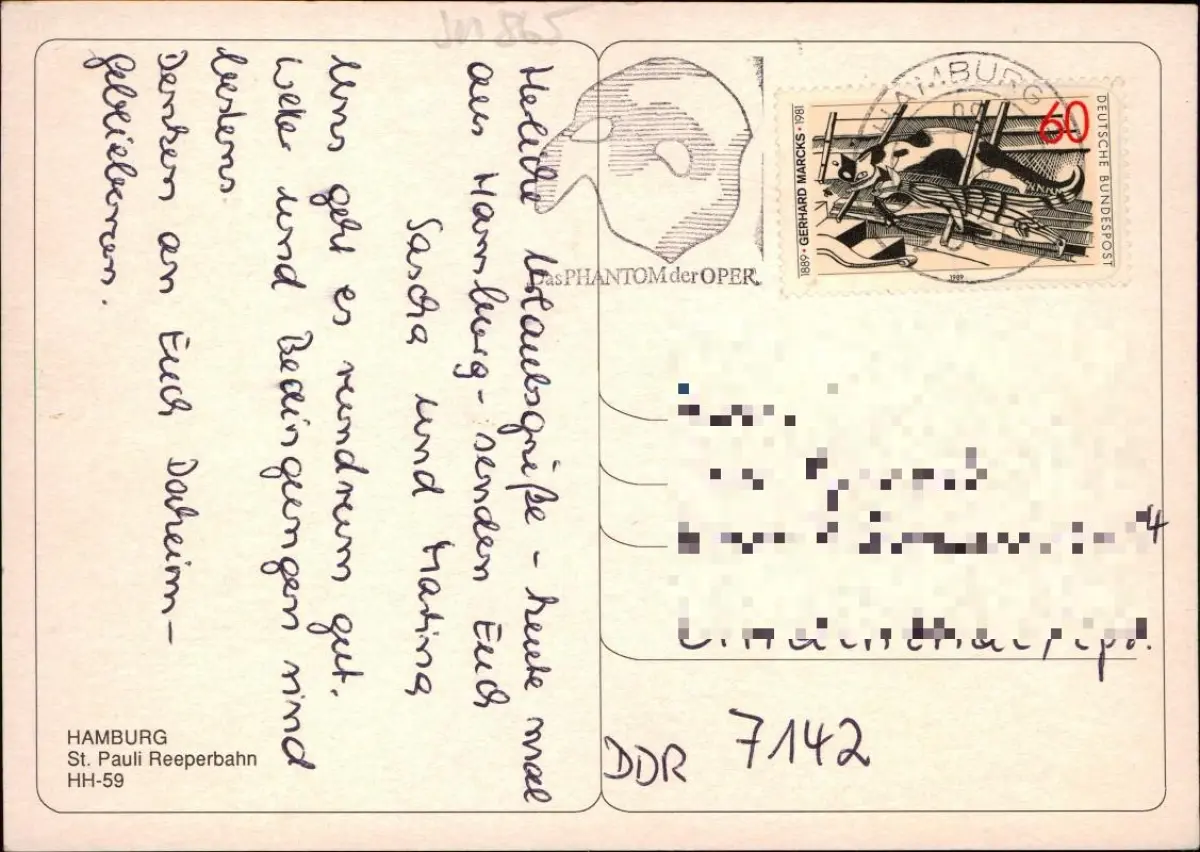 Herliche Urlaubsgrüße - heute mal
aus Hamburg - senden Euch
Sascha und Martina
Uns geht es rundrum gut.
Wetter und Bedingungen sind
bestens.
Denken an Euch Daheim-
gebliebenen.
HAMBURG
St. Pauli Reeperbahn
HH-59
DasPHANTOMderOPER.
HAMBURG
60
DEUTSCHE BUNDESPOST
1889 · GERHARD MARCKS · 1981
1989
4
DDR 7142